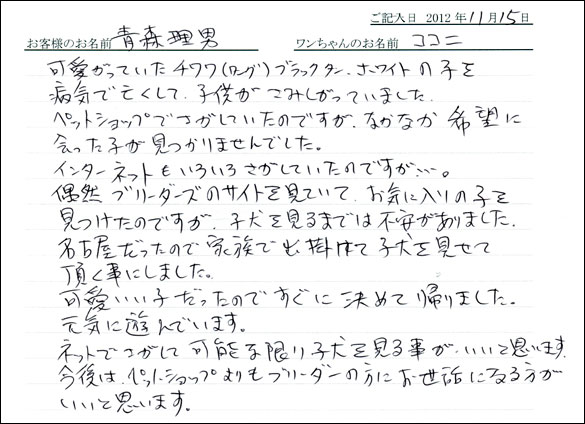 ご記入日 2012年11月15日
お客様のお名前 青森理男 ワンちゃんのお名前 ココニ
可愛がっていたチワワ(ロング)ブラックタン、ホワイトの子を
病気で亡くして、子供がこみしがっていました。
ペットショップでさがしていたのですが、なかなか希望に
会った子が見つかりませんでした。
インターネットもいろいろさがしていたのですが…。
偶然ブリーダーズのサイトを見ていて、お気に入りの子を
見つけたのですが、子犬を見るまでは不安がありました。
名古屋だったので家族で出掛けて子犬を見せて
頂く事にしました。
可愛いい子だったのですぐに決めて帰りました。
元気に遊んでいます。
ネットでさがして可能な限り子犬を見る事が、いいと思います。
今後は、ペットショップよりもブリーダーの方にお世話になる方が
いいと思います。